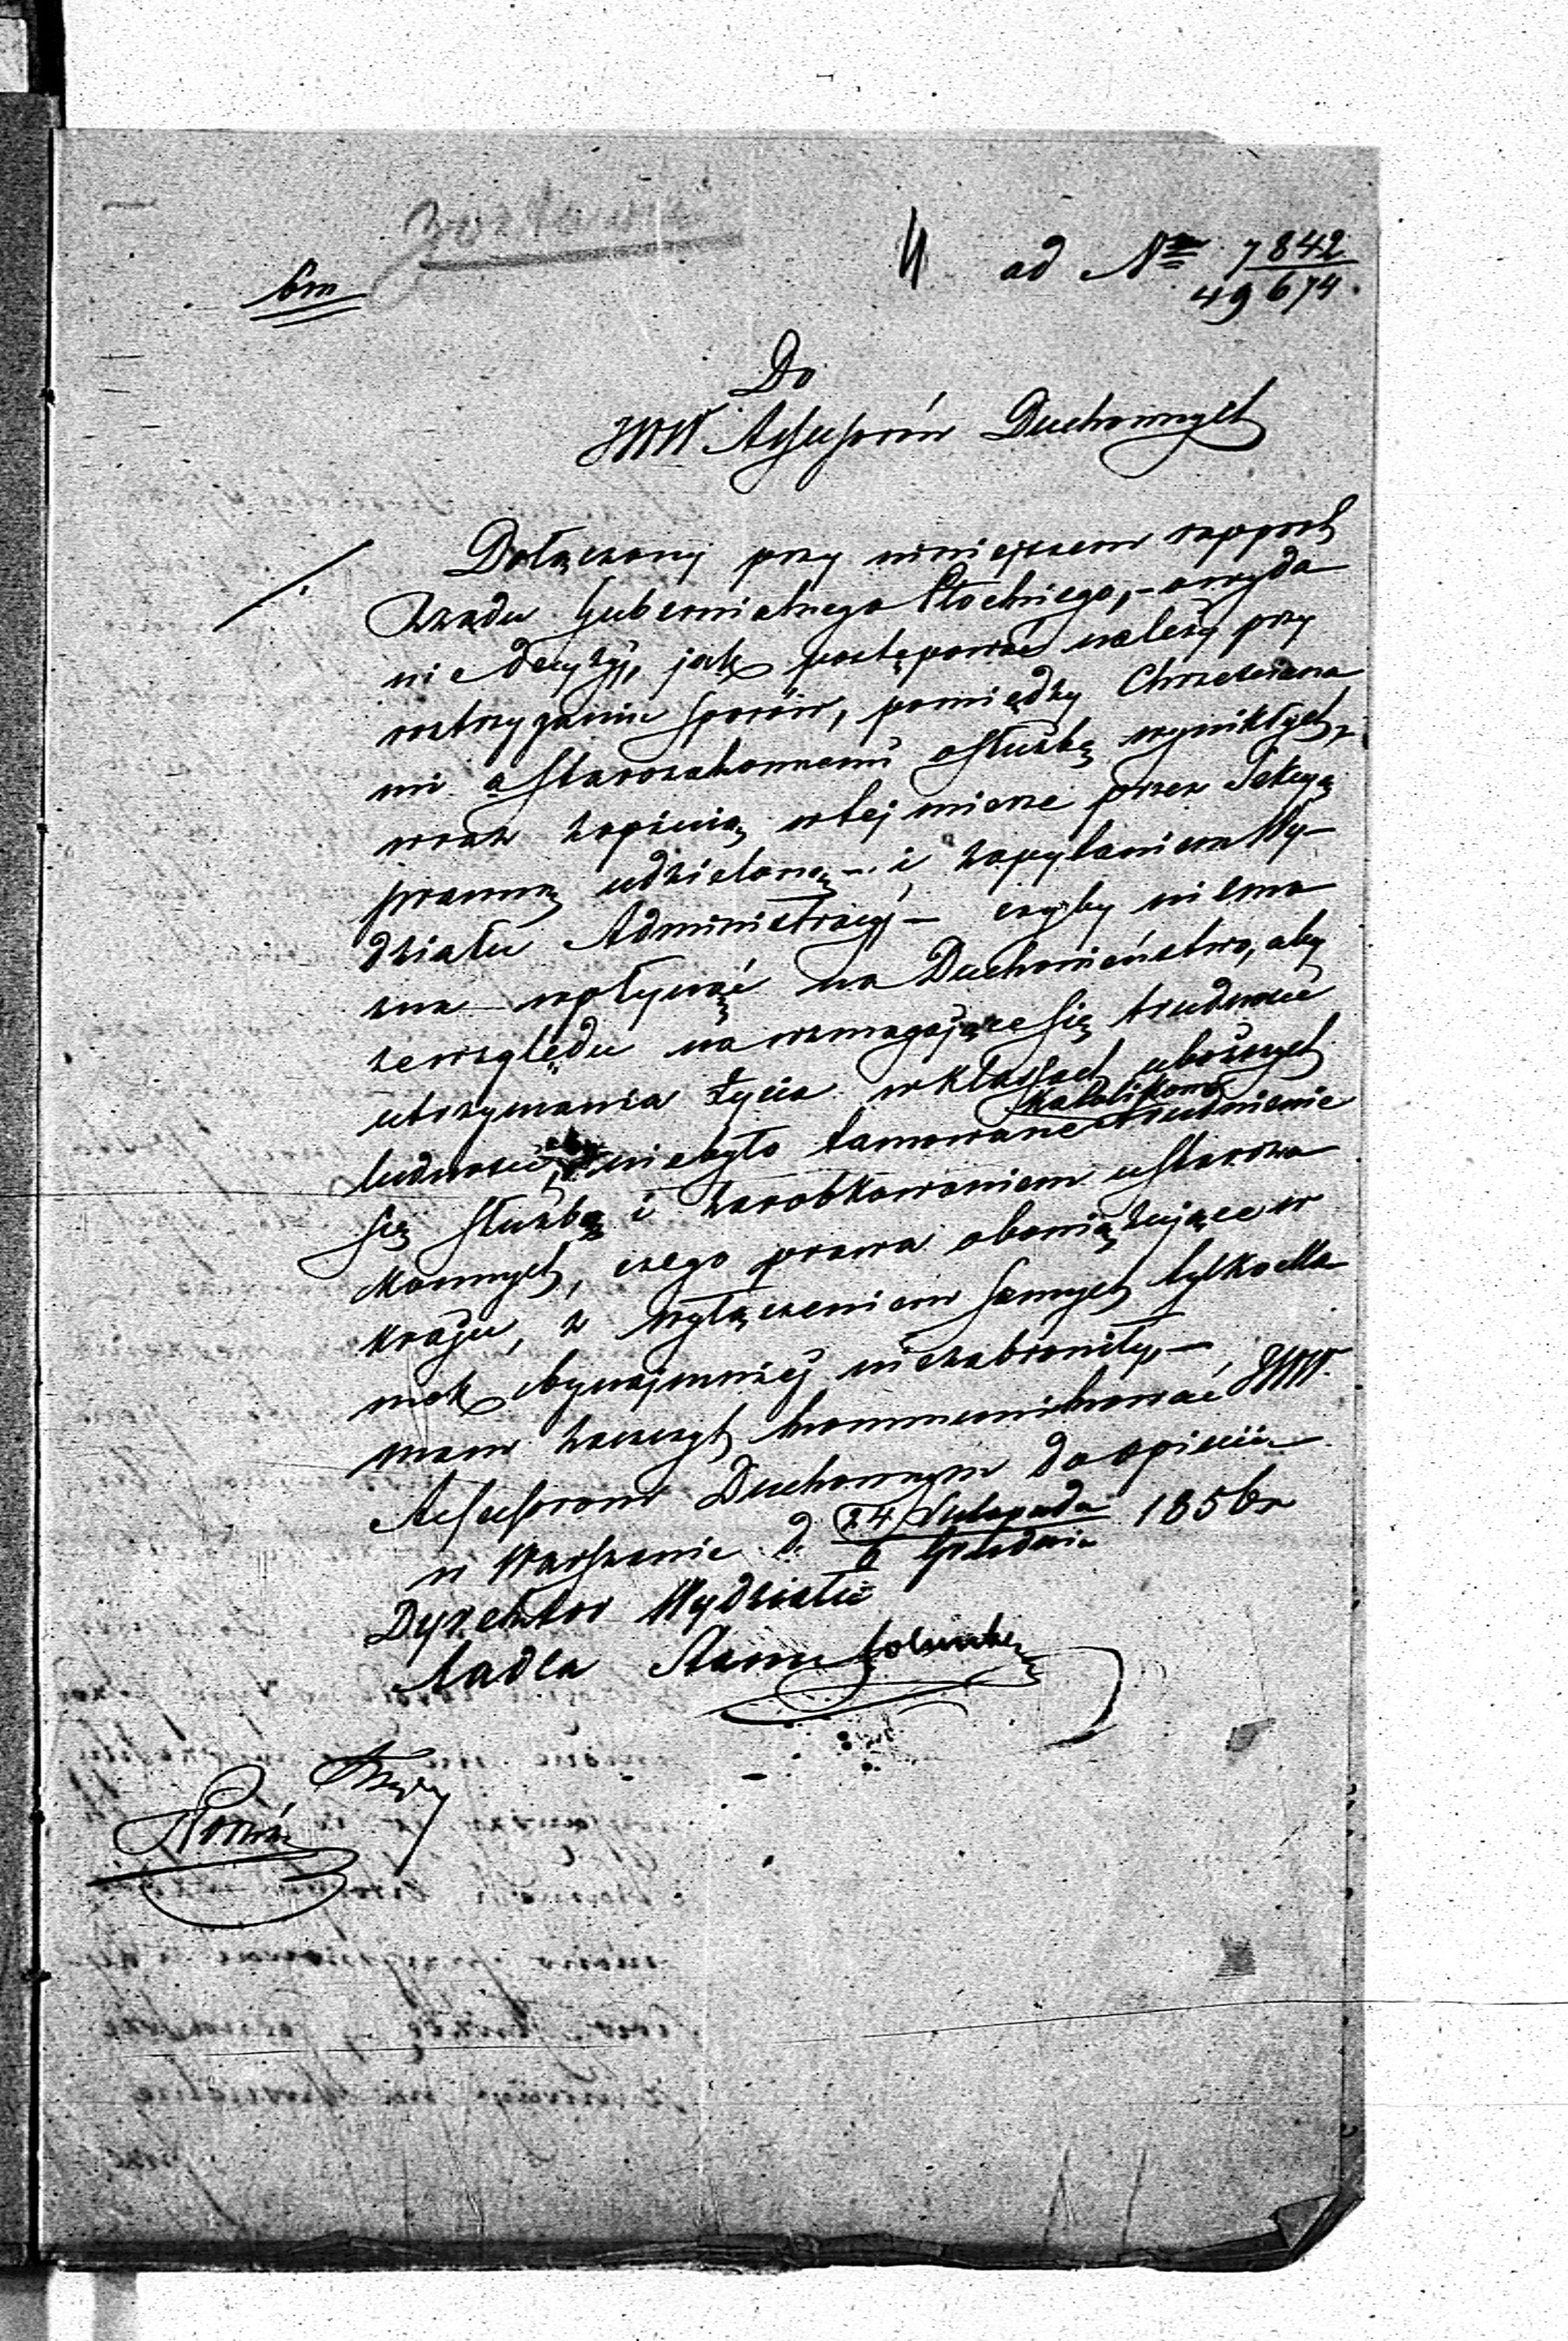 4 ad No 7842
49674.
Do
JWW Assessorów Duchownych
Dołączony przy niniejszem rapport
Rządu Gubernialnego Płockiego, – o wyda
nie decyzyi, jak postępować należy przy
rostrzyganiu sporów, pomiędzy Chrześciana
mi a Starozakonnemi o służbę wynikłych,
wraz z opinią w tej mierze przez Sekcyą
prawną udzieloną – i zapytaniem Wy–
działu Administracyi – czyby nie mo
żna wpłynąć na Duchowieństwo, aby
ze względu na wzmagające się trudności
utrzymania życia w klassach uboższych
ludności, aby nie było tamowane Katolikom trudnienie
się służbą i zarobkowaniem u Staroza
konnych, czego prawa obowiązujące w
kraju, z wyłączeniem samych tylko Ma
mek bynajmniej nie zabroniły, –
mam zaszczyt kommunikować JWW.
Assessorom Duchownym do opinii
w Warszawie d. 24 Listopada 1856 r
6 Grudnia
Dyrektor Wydziału
Radca Stanu